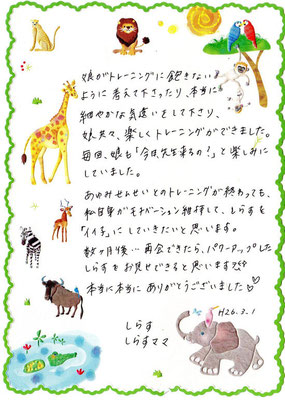 娘がトレーニングに飽きない
ように考えて下さったり、本当に
細やかな気遣いをして下さり、
娘共々、楽しくトレーニングができました。
毎回、娘も「今日、先生来るの?」と楽しみに
していました。
あゆみせんせいとのトレーニングが終わっても、
私自身がモチベーション維持して、しらすを
"イイ子"にしていきたいと思います。
数ヶ月後…再会できたら、パワーアップした
しらすをお見せできると思います
本当に本当に ありがとうございました♡
H26.3.1
しらす
しらすママ